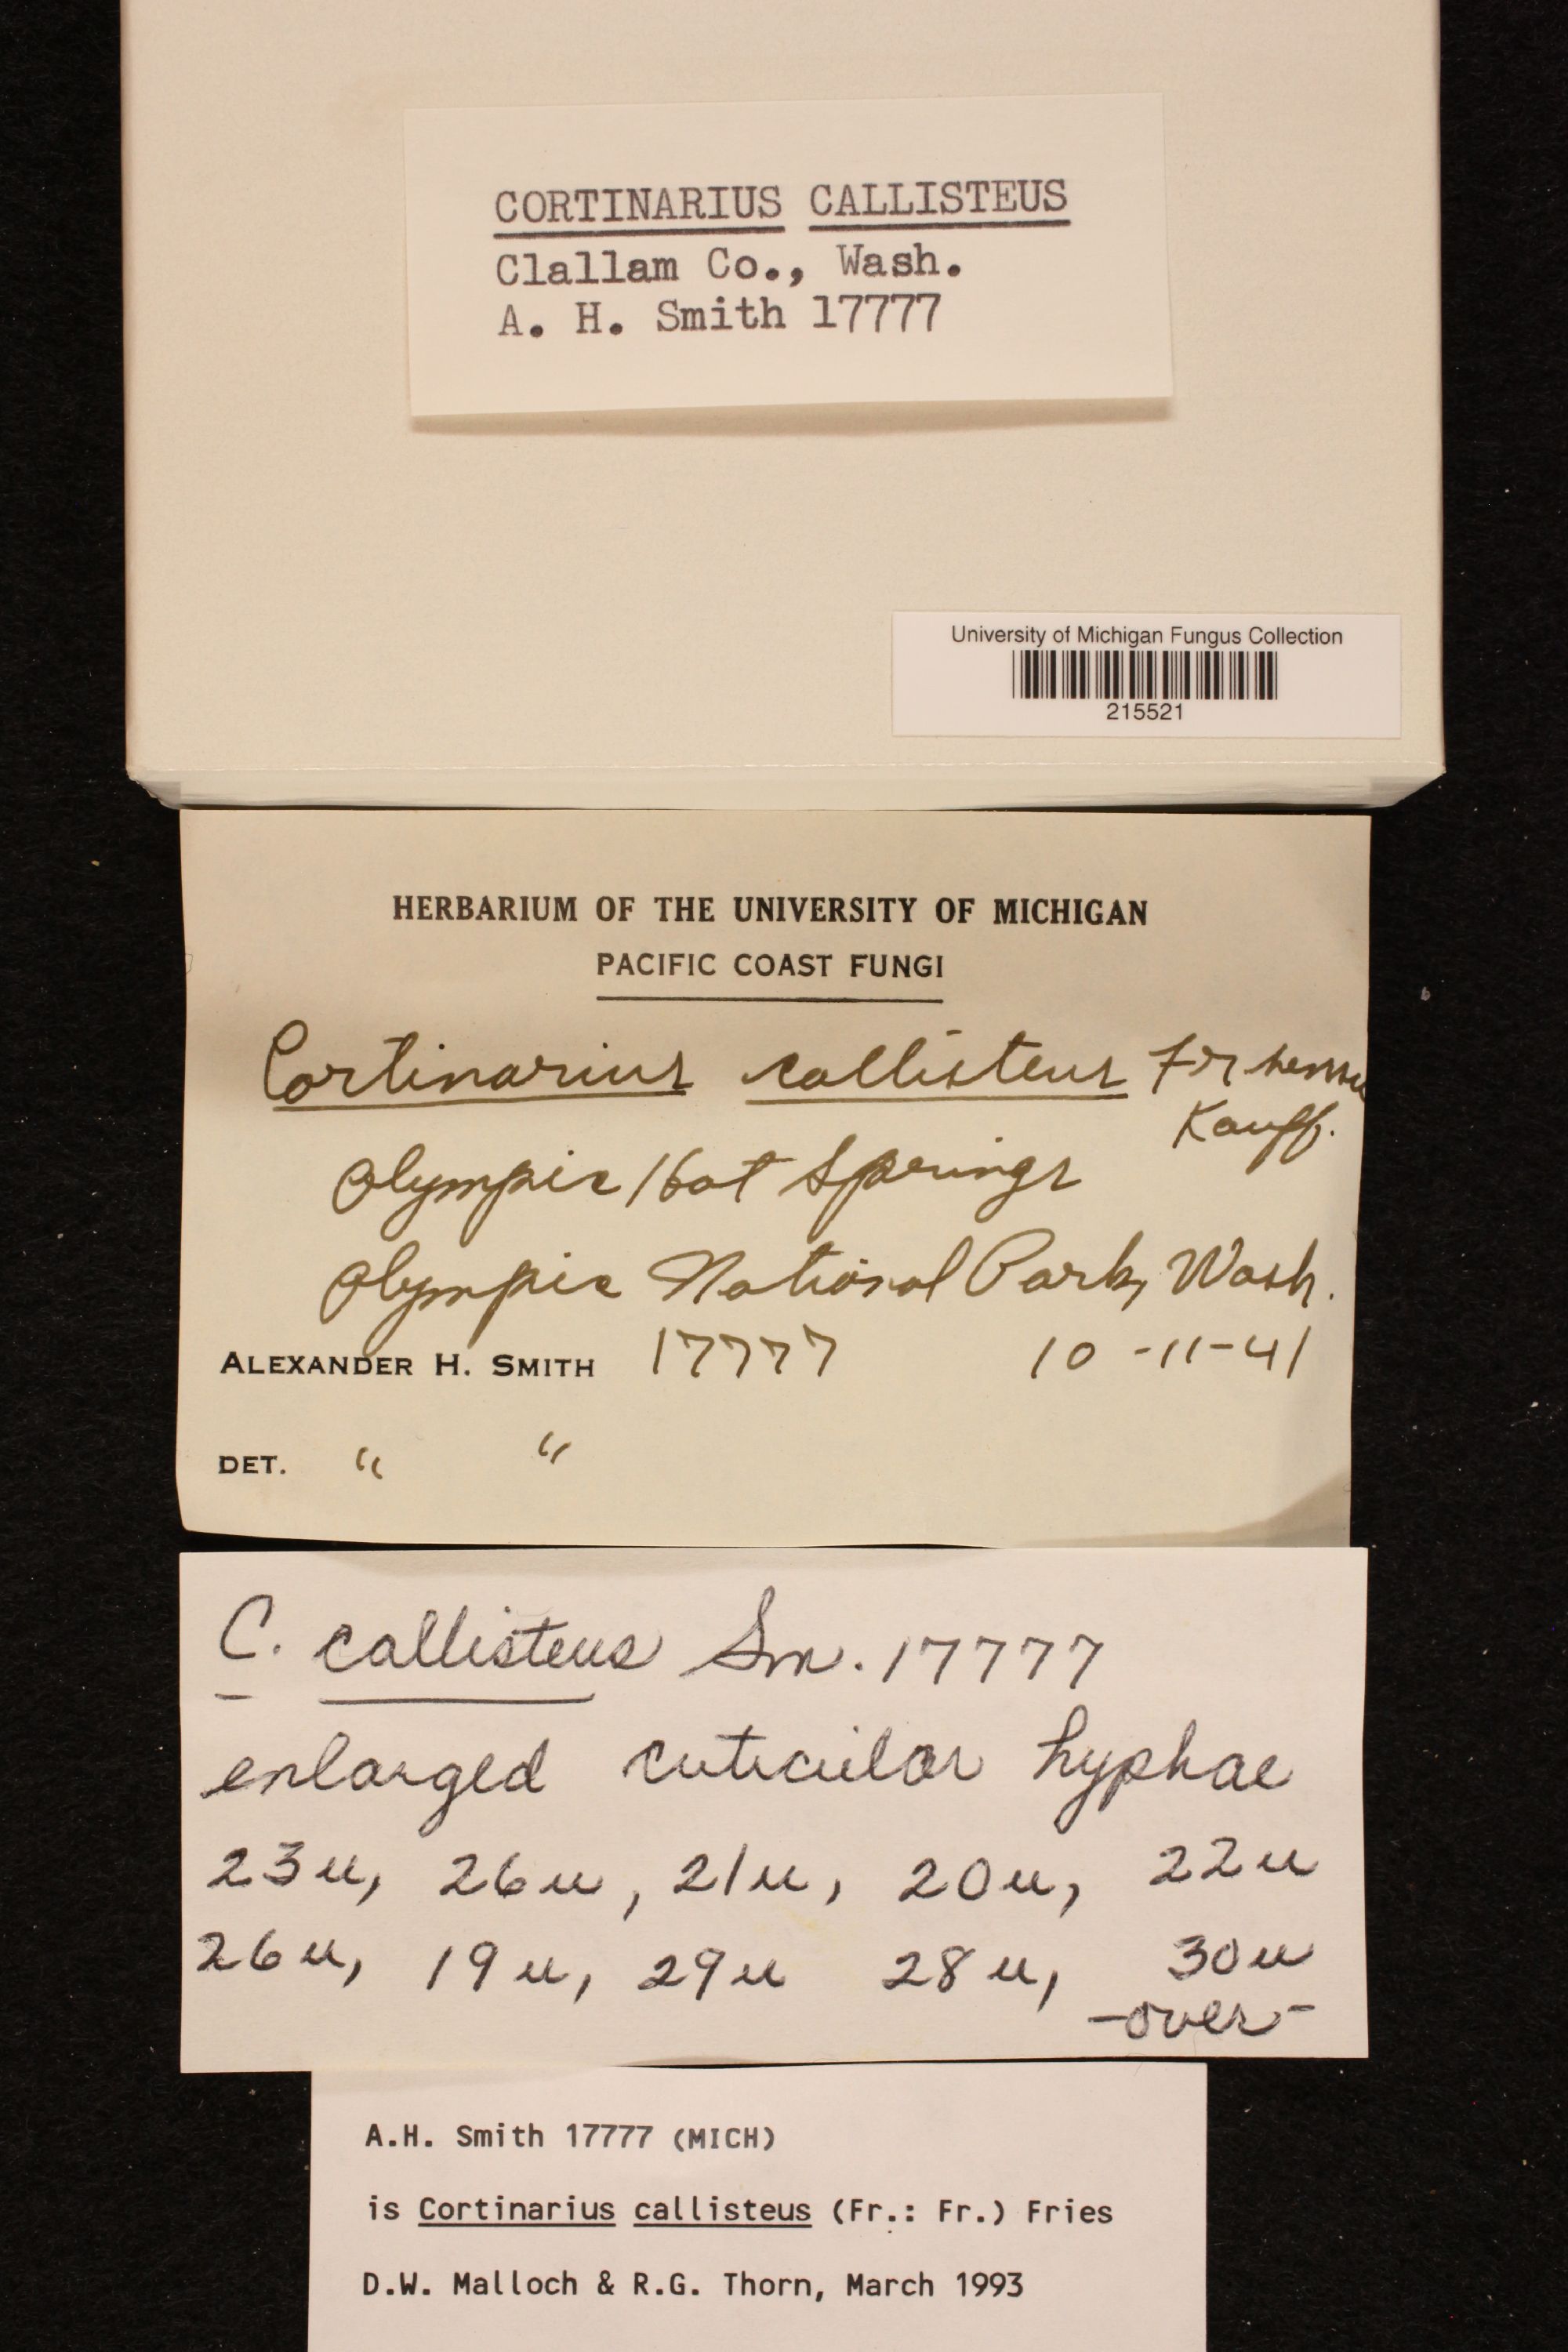 CORTINARIUS CALLISTEUS
Clallam Co., Wash.
A. H. Smith 17777
University of Michigan Fungus Collection
215521
HERBARIUM OF THE UNIVERSITY OF MICHIGAN
PACIFIC COAST FUNGI
Cortinarius callisteus Fr sensu
Kauff.
Olympic Hot Springs
Olympic National Park, Wash.
ALEXANDER H. SMITH 17777 10-11-41
DET. " "
C. callisteus Sm. 17777
enlarged cuticular hyphae
23u, 26u, 21u, 20u, 22u
26u, 19u, 29u 28u, 30u
-over-
A.H. Smith 17777 (MICH)
is Cortinarius callisteus (Fr.: Fr.) Fries
D.W. Malloch & R.G. Thorn, March 1993